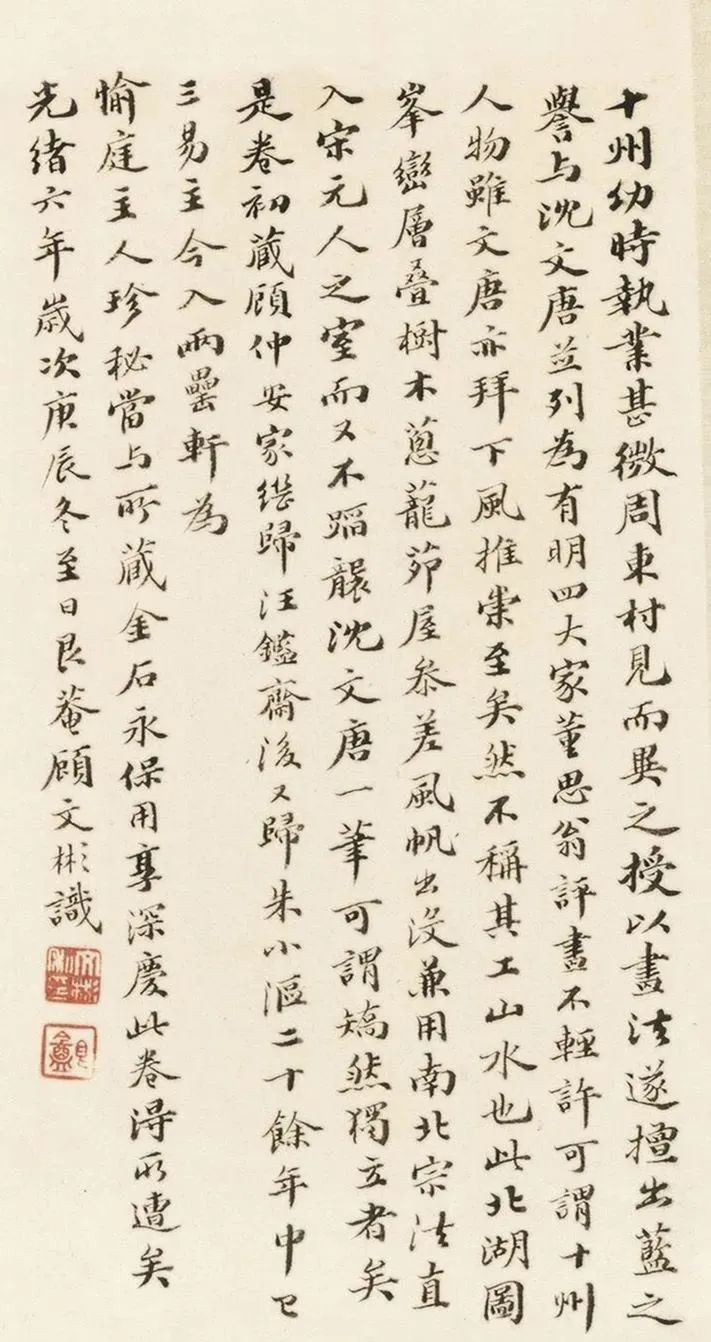 十州幼時執業甚微周東村見而異之授以畫法遂擅出藍之
譽与沈文唐並列為有明四大家董思翁評畫不輕許可謂十州
人物雖文唐亦拜下風推崇至矣然不稱其工山水也此北湖圖
峯巒層疊樹木蔥蘢茆屋參差風帆出沒兼用南北宗法直
入宋元人之室而又不蹈襲沈文唐一筆可謂矯然獨立者矣
是卷初藏顧仲安家繼歸汪鑑齋後又歸朱小漚二十餘年中已
三易主今入兩罍軒為
愉庭主人珍秘當与所藏金石永保用享深慶此卷得所遭矣
光緒六年歲次庚辰冬至日艮菴顧文彬識
文彬
艮盦